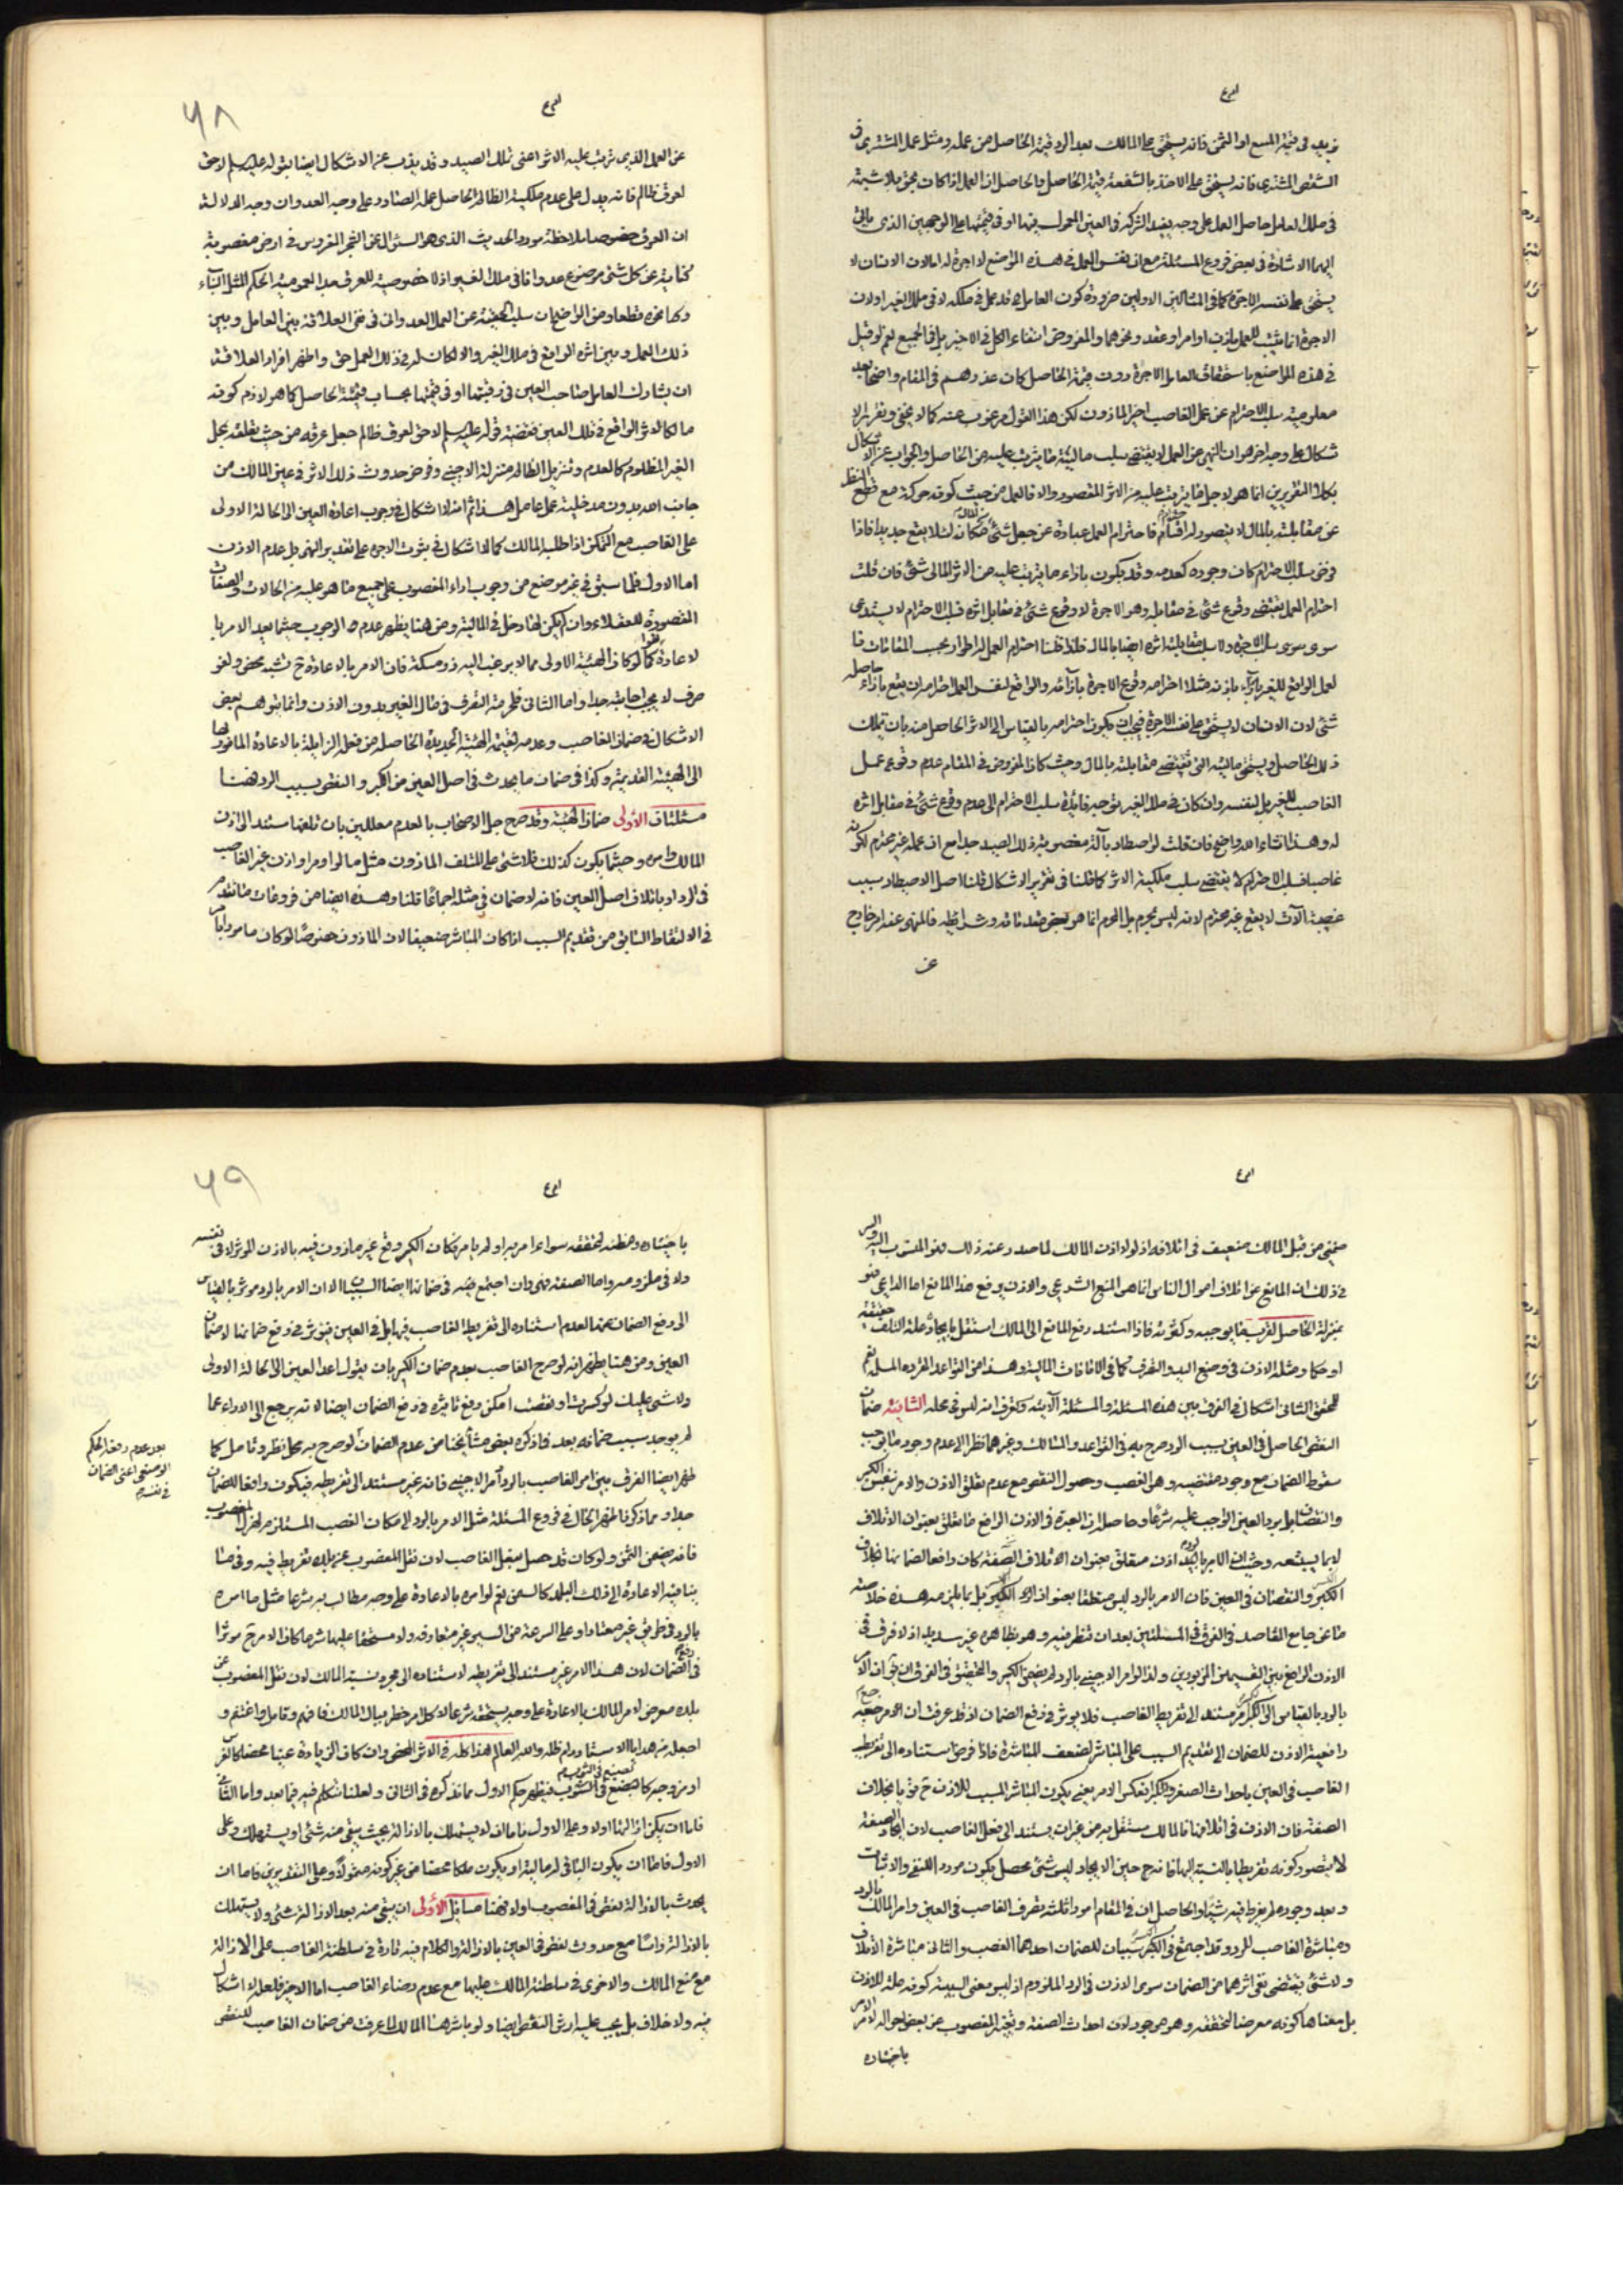 يزيد في قيمة المبيع او الثمن فانه يستحق على المالك بعد الرد قيمة الحاصل من عمله ومثل عمل المشتري في
الشقص المشترى فانه يستحق على الاخذ بالشفعة قيمة الحاصل والحاصل ان العمل اذا كان بحق بلا شبهة
في ملك العامل حاصل العمل على وجه يفيد الشركة في العين المعمول فيها او في قيمتها على الوجهين الذي ياتي
اليهما الاشارة في بعض فروع المسئلة مع ان نفس العمل في هذه المواضع لا اجرة له لان الانسان لا
يستحق على نفسه الاجرة كما في المثالين الاولين ضرورة كون العامل قد عمل في ملكه لا في ملك الغير اولان
الاجرة انما يثبت للعمل باذن او امر او عقد ونحوهما والمفروض انتفاء الكل في الاخير بل في الجميع نعم لو قيل
في هذه المواضع باستحقاق العامل الاجرة دون قيمة الحاصل كان عذرهم في المقام واضحا بعد
معلومية سلب الاحترام عن عمل الغاصب الغير الماذون لكن هذا القول مرغوب عنه كما لا يخفى وتقرير الا
شكال على وجه اخر هو ان النهي عن العمل لا يقتضي سلب مالية ما يترتب عليه من الحاصل والجواب عن الاشكال
بكلا التقريرين انما هو لاجل ما يترتب عليه من الاثر المقصود والا فالعمل من حيث كونه حركة مع قطع النظر
عن مقابلته بالمال لا يتصور له احترام فاحترام العمل عبارة عن جعل شئ في مقابله
فرض سلب الاحترام كان وجوده كعدمه وقد يكون بازاء ما يترتب عليه من الاثر المالي شئ فان قلت
احترام العمل يقتضي وقوع شئ في مقابله وهو الاجرة لا وقوع شئ في مقابل اثره فسلب الاحترام لا يستدعي
سوى سلب الاجرة ولا سلب مقابلة اثره ايضا بالمال قلنا احترام العمل له اطوار بحسب المقامات فا
لعمل الواقع للغير باذنه مثلا احترامه وقوع الاجرة بازائه والواقع لنفس العمل احترامه ان يقع بازاء حاصله
شئ لان الانسان لا يستحق على نفسه الاجرة فيجب ان يكون احترامه بالقياس الى الاثر الحاصل منه بان تملك
ذلك الحاصل ويستحق ماليته التي تقتضي مقابلته بالمال وحيث كان المفروض في المقام عدم وقوع عمل
الغاصب للغير بل لنفسه وان كان في ملك الغير توجه فائدة سلب الاحترام الى عدم وقوع شئ في مقابل اثره
له وهذا انشاء الله واضح فان قلت لو اصطاد بآلة مغصوبة ملك الصيد جدا مع ان عمله غير محترم لكونه
غاصبا فسلب الاحترام لا يقتضي سلب ملكية الاثر كما قلنا في تقرير الاشكال قلنا اصل الاصطياد بسبب
غصب الآلة لا يقع غير محترم لانه ليس بمحرم بل المحرم انما هو بعض مقدماته وشرائطه فالمنهي عنه امر خارج
عن
٦٨
عن العمل الذي ترتب عليه الاثر اعني تملك الصيد وقد يذب عن الاشكال ايضا بقوله عليه السلم لا حق
لعرق ظالم فانه يدل على عدم ملكية الظالم الحاصل عمله الصادر على وجه العدوان وجه الدلالة
ان العرق خصوصا بملاحظة مورد الحديث الذي هو السئوال عن الشجر المغروس في ارض مغصوبة
كناية عن كل شئ موضوع عدوانا في ملك الغير اذ لا خصوصية للعرق بعد العمومية الحكم لمثل البناء
ذلك العمل وبين اثره الواقع في ملك الغير والا لكان له في ذلك العمل حق واظهر افراد العلاقة
ان يشارك العامل صاحب العين في رقبتها او في قيمتها بحساب قيمة الحاصل كما هو لازم كونه
مالكا للاثر الواقع في تلك العين فقضية قوله عليه السلم لا حق لعرق ظالم جعل عرقه من حيث تعلقه بمحل
الغير المظلوم كالعدم وتنزيل الظالم منزلة الاجنبي وفرض حدوث ذلك الاثر في عين المالك من
جانب الله بدون مدخلية عمل عامل هذا ثم انه لا اشكال في وجوب اعادة العين الى الحالة الاولى
على الغاصب مع التمكن اذا طلبه المالك كما لا اشكال في ثبوت الاجرة على تقدير النهي بل عدم الاذن
اما الاول فلما سبق في غير موضع من وجوب اداء المغصوب على جميع ما هو عليه من الحالات والصفات
المقصودة للعقلاء وان لم يكن لها دخل في المالية ومن هنا يظهر عدم الوجوب حيثما بعد الامر با
لاعادة لغوا كما لو كان الهيئة الاولى مما لا يرغب اليه ذو مسكة فان الامر بالاعادة ح تشبه محض ولغو
صرف لا يجب اجابته جدا واما الثاني فلحرمة التصرف في مال الغير بدون الاذن وانما يتوهم بعض
الاشكال في ضمان الغاصب وعدمه لقيمة الهيئة الجديدة الحاصلة من فعله الزايلة بالاعادة المامور بها
الى الهيئة القديمة وكذا في ضمان ما يحدث في اصل العين من الكسر والنقص بسبب الرد فهنا
مسئلتان الأولى ضمان الهيئة وقد صرح جل الاصحاب بالعدم معللين بان تلفها مستند الى اذن
المالك وامره وحيثما يكون كذلك فلا شئ على المتلف الماذون مثل ما لو امر او اذن غير الغاصب
في الرد او باتلاف اصل العين فانه لا ضمان في مثله اجماعا قلنا وهذه ايضا من فروعات ما تقدم
في الالتقاط السابق من تقديم السبب اذا كان المباشر ضعيفا لان الماذون خصوصا لو كان مامورا
ضمني من قبل المالك ضعيف في اتلافه اذ لولا اذن المالك لما صدر وعنه ذلك فهو المنسوب اليه والسر
في ذلك ان المانع عن اتلاف اموال الناس انما هو المنع الشرعي والاذن يرفع هذا المانع اما الداعي فهو
بمنزلة الحاصل لقرب ما يوجبه وكثرته فاذا استند رفع المانع الى المالك استقل بايجاد علة التلف حقيقة
او حكما ومثله الاذن في وضع اليد والتصرف كما في الامانات المالية وهذا من القواعد المقررة المسلمة نعم
للمحقق الثاني اشكال في الفرق بين هذه المسئلة والمسئلة الآتية وستعرف انه ليس في محله الثانية ضمان
النقص الحاصل في العين بسبب الرد صرح به في القواعد والمسالك وغيرهما نظرا الى عدم وجود ما يوجب
سقوط الضمان مع وجود مقتضيه وهو الغصب وحصول النقص مع عدم تعلق الاذن والامر بنفس الكسر
والنقصان بل برد العين الواجب عليه شرعا وحاصله ان العبرة في الاذن الرافع ما يتعلق بعنوان الاتلاف
لا بما يستتبعه وحيث ان الامر بالرد اذن متعلق بعنوان الاتلاف الصفة كان رافعا لضمانها بخلاف
الكسر والنقصان في العين فان الامر بالرد ليس متعلقا بعنوان الكسر بل بما يلزمه هذه خلاصة
ما عن جامع المقاصد في الفرق في المسئلتين بعد ان تنظر فيه وهو بظاهره غير سديد اذ لا فرق في
الاذن الواقع بين القسمين المزبورين ولذا لو امر الاجنبي بالرد لم يضمن الكسر والتحقيق في الفرق ان يقال ان الامر
بالرد بالقياس الى الكسر مستند الى تفريط الغاصب فلا يؤثر في رفع الضمان اذ قد عرفت ان الامر مرجعه
رافعية الاذن للضمان الى تقديم السبب على المباشر لضعف المباشرة فاذا فرض استناده الى تفريط
الغاصب في العين باحداث الصغر والكبر انعكس الامر يعني يكون المباشر المسبب للاذن ح قويا بخلاف
الصفة فان الاذن في اتلافها فالمالك مستقل به من غير ان يستند الى فعل الغاصب لان ايجاد الصفة
لا يتصور كونه تفريطا بالنسبة اليها فانه ح حين الايجاد ليس شئ محصل يكون مورد النفي والاثبات
وبعد وجوده لم يفرط فيه شيئا والحاصل ان في المقام امورا ثلثة تصرف الغاصب في العين وامر المالك بالرد
ومباشرة الغاصب للرد وقد اجتمع في الكسر سببان للضمان احدهما الغصب والثاني مباشرة الاتلاف
ولا شئ يقتضي نفي اثرهما من الضمان سوى الاذن في الرد الملزوم اذ ليس معنى السببية كونه علة للاذن
بل معناها كونه معرضا لتحققه وهو موجود لان احداث الصفة وتغير المغصوب عن بعض احواله لامر
باختياره
٦٩
باختياره ومظنة لتحققه سواء امر به او لم يامر فكان الكسر وقع غير ماذون فيه بالاذن المؤثر لا في نفسه
ولا في ملزومه واما الصفة فهي وان اجتمع فيه في ضمانها ايضا السببان الا ان الامر بالرد مؤثر بالقياس
الى رفع الضمان عنها لعدم استناده الى تفريط الغاصب فيها بل في العين فيؤثر في رفع ضمانها لا ضمان
العين ومن هنا يظهر انه لو صرح الغاصب بعدم ضمان الكسر بان يقول اعد العين الى الحالة الاولى
ولا شئ عليك لو كسرت او نقصت امكن رفع تاثيره في رفع الضمان ايضا لانه يرجع الى الابراء عما
لم يوجد سبب ضمانه بعد فما ذكره بعض مشايخنا من عدم الضمان لو صرح به محل نظر وتامل كما
ظهر ايضا الفرق بين امر الغاصب بالرد وامر الاجنبي فانه غير مستند الى تفريطه فيكون رافعا للضمان
جدا ومما ذكرنا ظهر الحال في فروع المسئلة مثل الامر بالرد الى مكان الغصب المستلزم لهزل المغصوب
بعد عدم رفعه الحكم
الوضعي اعني الضمان
في نفسه
فانه يضمن الثمن ولو كان قد حصل بفعل الغاصب لان نقل المغصوب عن بلده تفريط فيه وفي منا
ينافيه الاعادة الى ذلك البلد كالسمن نعم لو امره بالاعادة على وجه مطالب به شرعا مثل ما امره
بالرد في طريق غير معتاد او على السرعة من السير غير متعارفة ولا مستحقا عليها شرعا كان الامر ح مؤثرا
في رفع الضمان لان هذا الامر غير مستند الى تفريطه لاستناده الى مجرد نسبة المالك لان نقل المغصوب عن
بلده معرض لامر المالك بالاعادة على وجه يستحقه شرعا لا كل امر خطر ببال المالك فافهم وتامل واغتنم و
اجعله من هدايا الاستاد دام ظله والله العالم هذا كله في الاثر المحض وان كان الزيادة عينا محضا كالغرس
او من وجه كالصبغ في الثوب فيظهر حكم الاول مما نذكره في الثاني ولعلنا نتكلم فيه فيما بعد واما الثاني
فاما ان يمكن ازالتها اولا وعلى الاول فاما ان لا يستهلك بالازالة بحيث يبقى منه شئ او يستهلك وعلى
الاول فاما ان يكون الباقي له مالية او يكون ملكا محضا من غير كونه متمولا وعلى التقديرين فاما ان
يحدث بالازالة نقص في المغصوب اولا فهنا مسائل الأولى ان يبقى منه بعد الازالة شئ ولا يستهلك
بالازالة راسا مع حدوث نقص في العين بالازالة والكلام فيه تارة في سلطنة الغاصب على الازالة
مع منع المالك والاخرى في سلطنة المالك عليها مع عدم رضاء الغاصب اما الاخير فلعله لا اشكال
فيه ولا خلاف بل يجب عليه ارش النقص ايضا ولو باشرها المالك لما عرفت من ضمان الغاصب للنقص